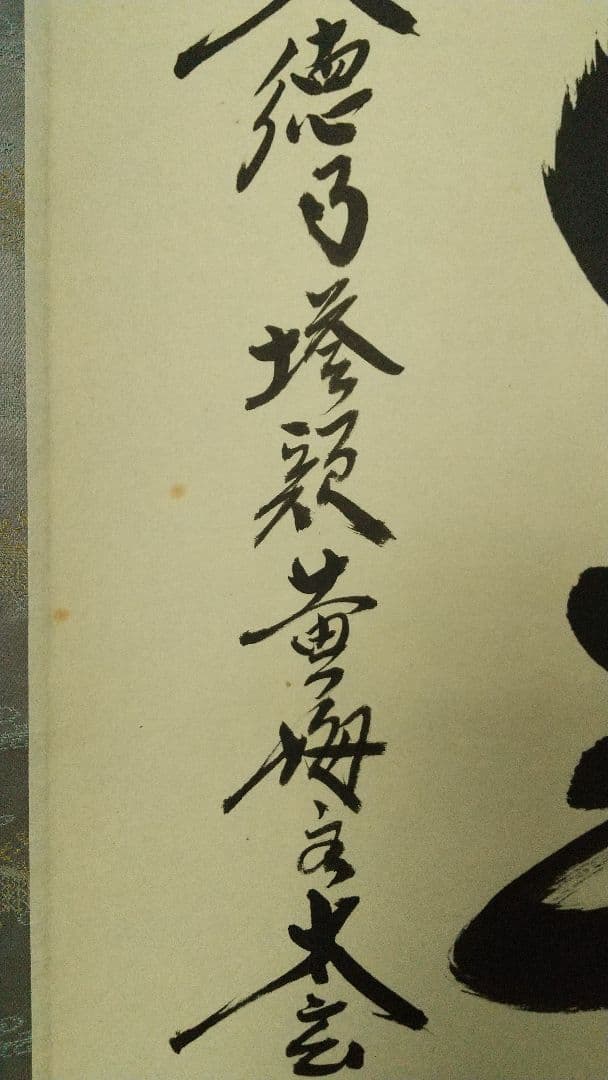 大徳乃塔頭黄梅主太玄